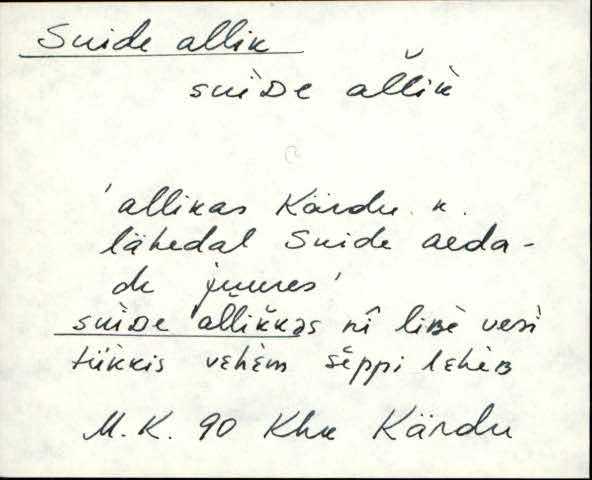 Suide allik
suìDe al̆lik̀
'allikas Kärdu k.
lähedal Suide aeda-
de juures'
suìDe al̆lik̆kas nî liʙè vesì
tükkis vehèm sĕppi lehèʙ
M. K. 90 Khk Kärdu